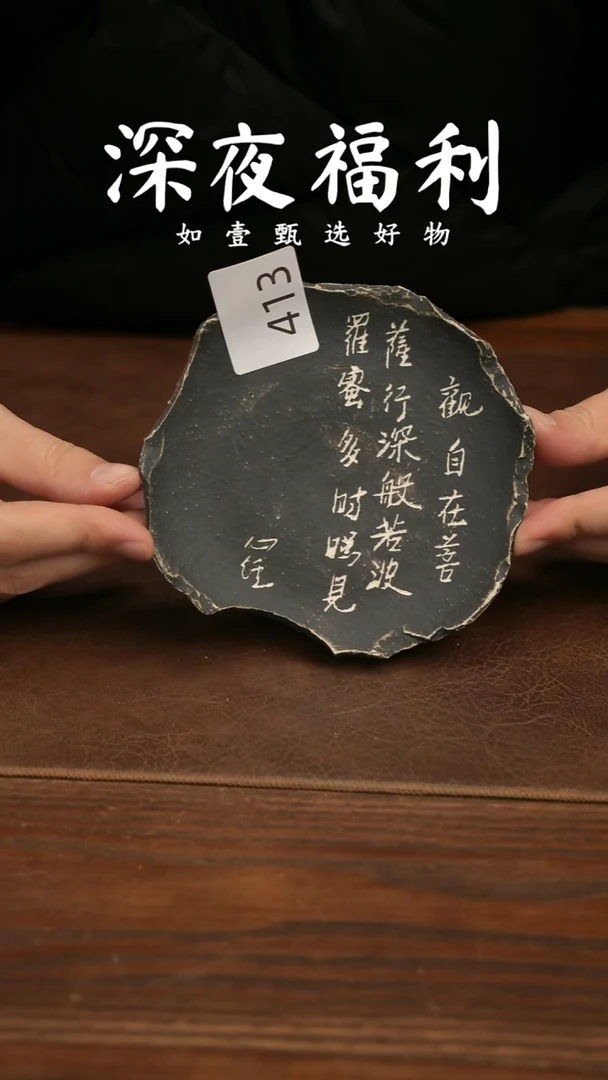 深夜福利
如壹甄选好物
413
觀自在菩
薩行深般若波
羅蜜多時照見
心经